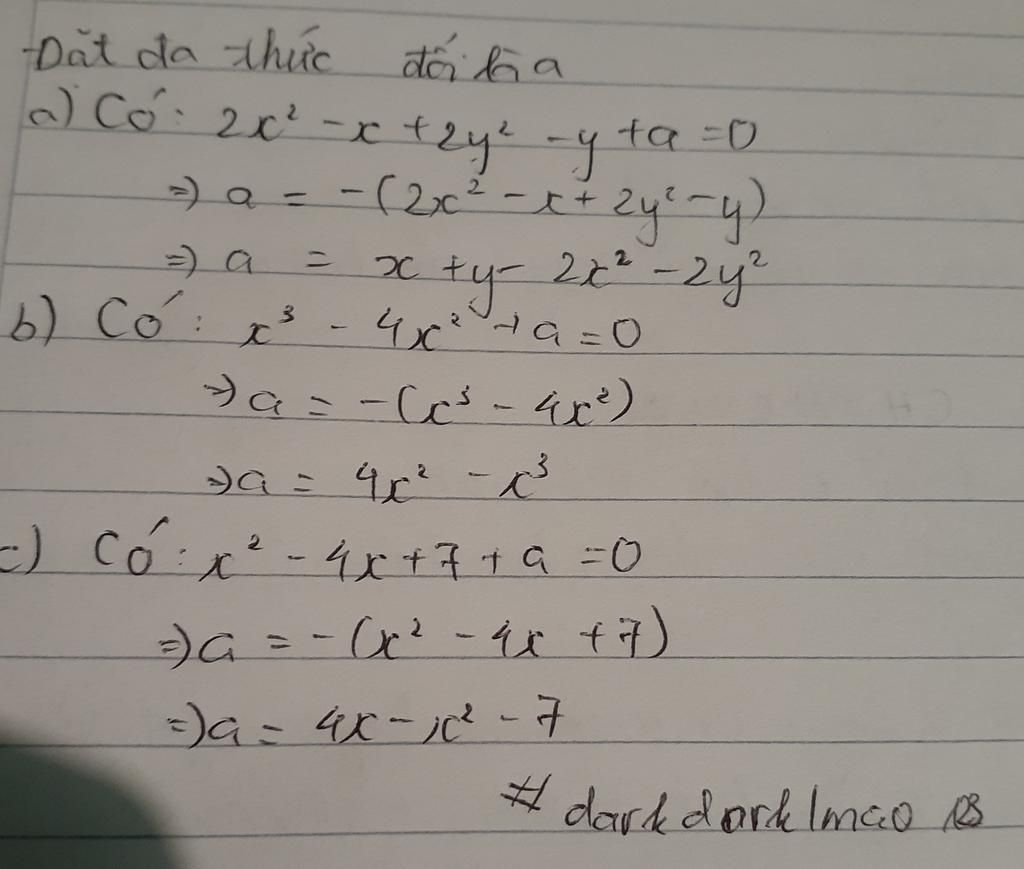 Đặt đa thức đối là a
a) Có: 2x² - x + 2y² - y + a = 0
=> a = -(2x² - x + 2y² - y)
=> a = x + y - 2x² - 2y²
b) Có: x³ - 4x² + a = 0
=> a = -(x³ - 4x²)
=> a = 4x² - x³
c) Có: x² - 4x + 7 + a = 0
=> a = -(x² - 4x + 7)
=> a = 4x - x² - 7
# darkdarklmao